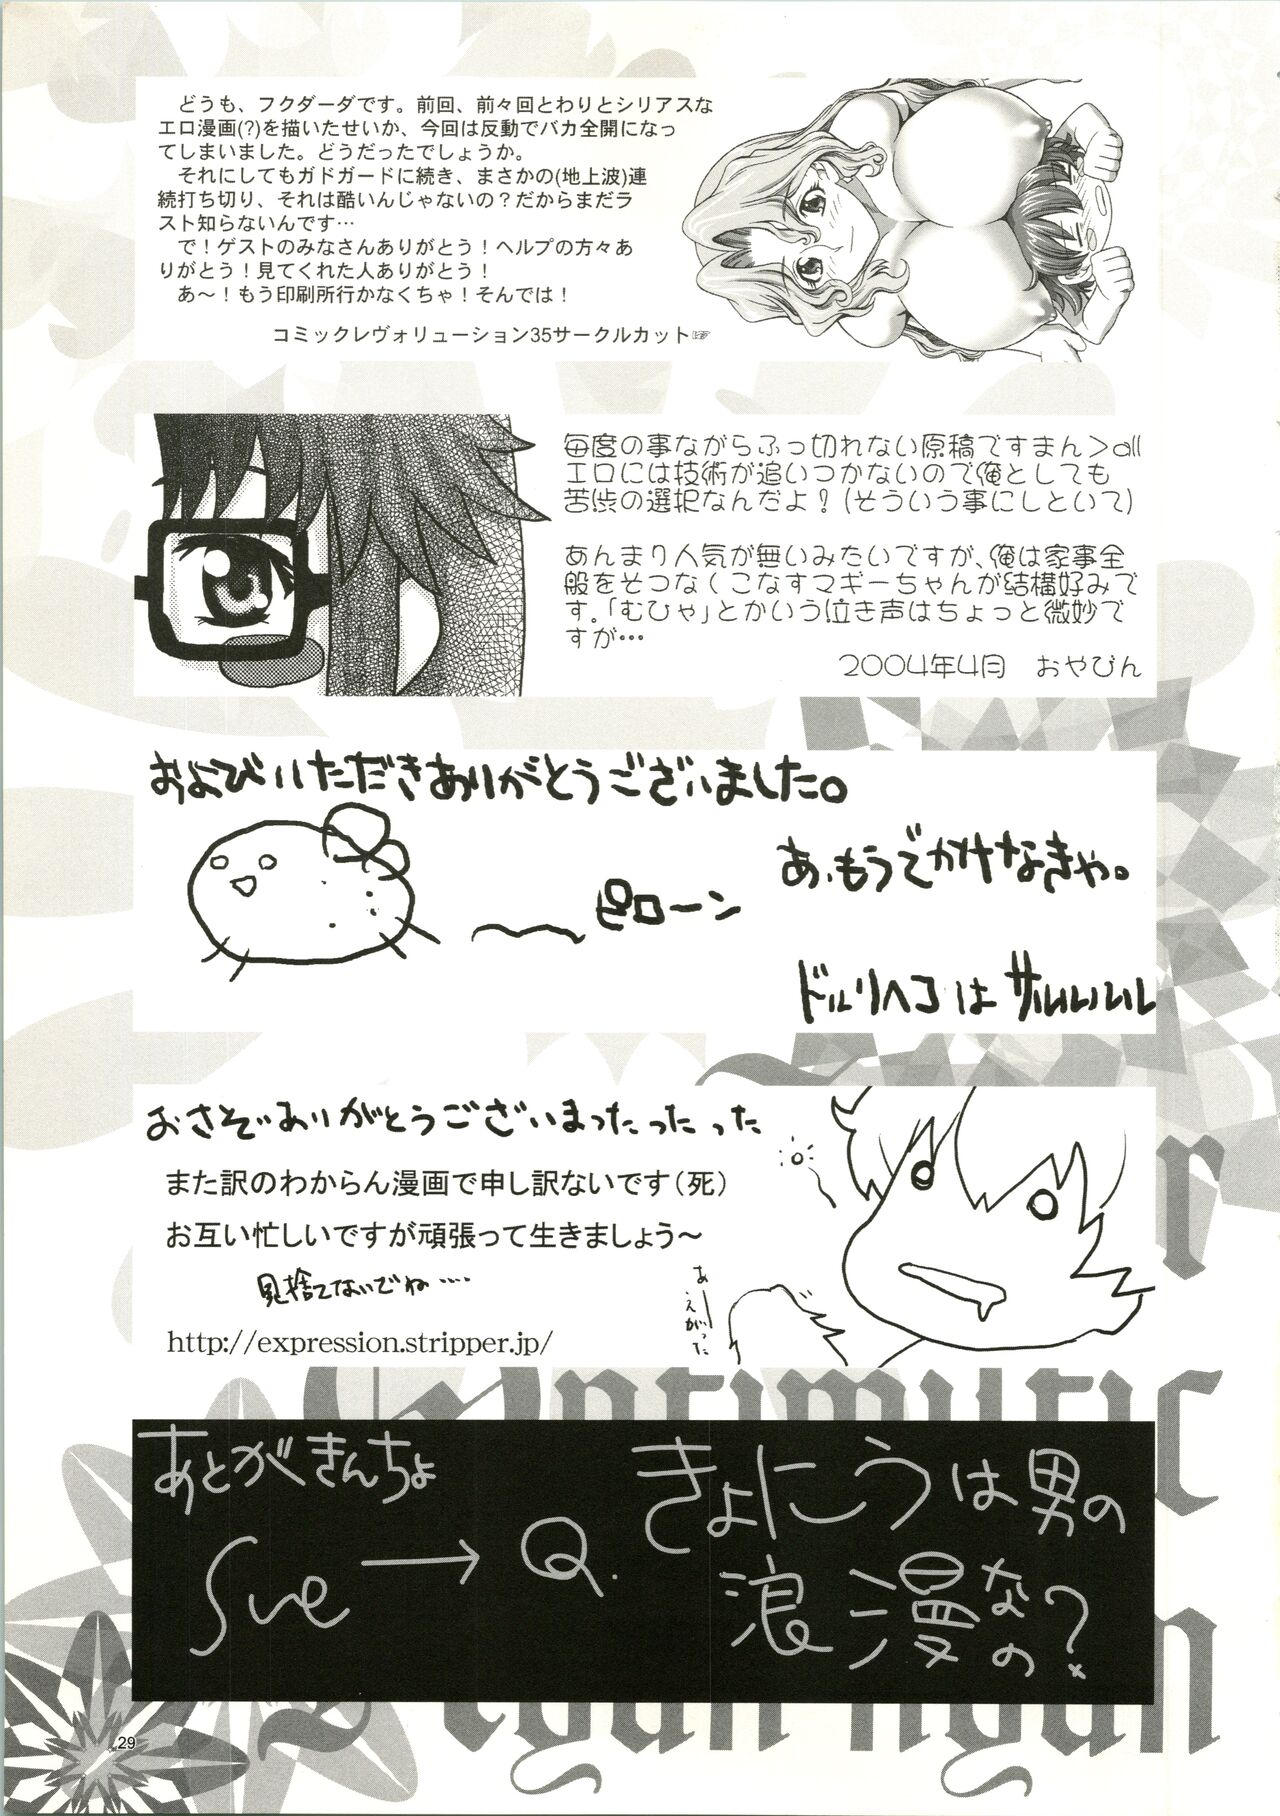 どうも、フクダーダです。前回、前々回とわりとシリアスな
エロ漫画(?)を描いたせいか、今回は反動でバカ全開になっ
てしまいました。どうだったでしょうか。
それにしてもガドガードに続き、まさかの(地上波)連
続打ち切り、それは酷いんじゃないの？だからまだラ
スト知らないんです…
で！ゲストのみなさんありがとう！ヘルプの方々あ
りがとう！見てくれた人ありがとう！
あ〜！もう印刷所行かなくちゃ！そんでは！
コミックレヴォリューション35サークルカット☞
毎度の事ながらふっ切れない原稿ですまん＞all
エロには技術が追いつかないので俺としても
苦渋の選択なんだよ？(そういう事にしといて)
あんまり人気が無いみたいですが、俺は家事全
般をそつなくこなすマギーちゃんが結構好みで
す。「むひゃ」とかいう泣き声はちょっと微妙で
すが…
2004年4月　おやびん
およびいただきありがとうございました。
あ、もうでかけなきゃ。
ピローン
ドルリヘコは サルルルル
おさそいありがとうございまったったった
また訳のわからん漫画で申し訳ないです(死)
お互い忙しいですが頑張って生きましょう〜
見捨てないでね‥‥
あーえがった
http://expression.stripper.jp/
Optimystic
あとがきんちょ
Sue → Q.
きょにうは男の
浪漫なの？
29